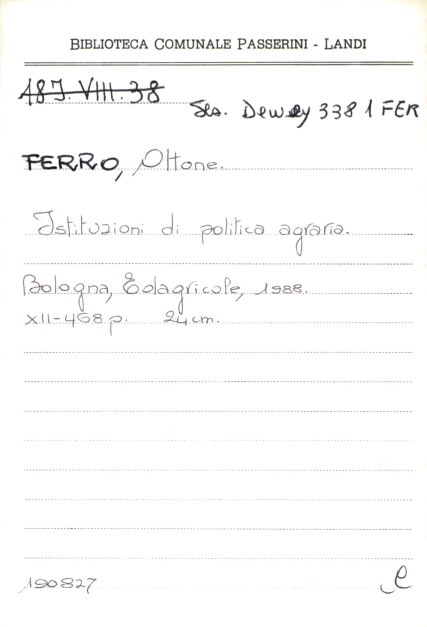 BIBLIOTECA COMUNALE PASSERINI - LANDI
18J. VIII. 38
Ses. Dewey 338 1 FER
FERRO, Ottone.
Istituzioni di politica agraria.
Bologna, Edagricole, 1988.
XII-468 p. 24 cm.
190827